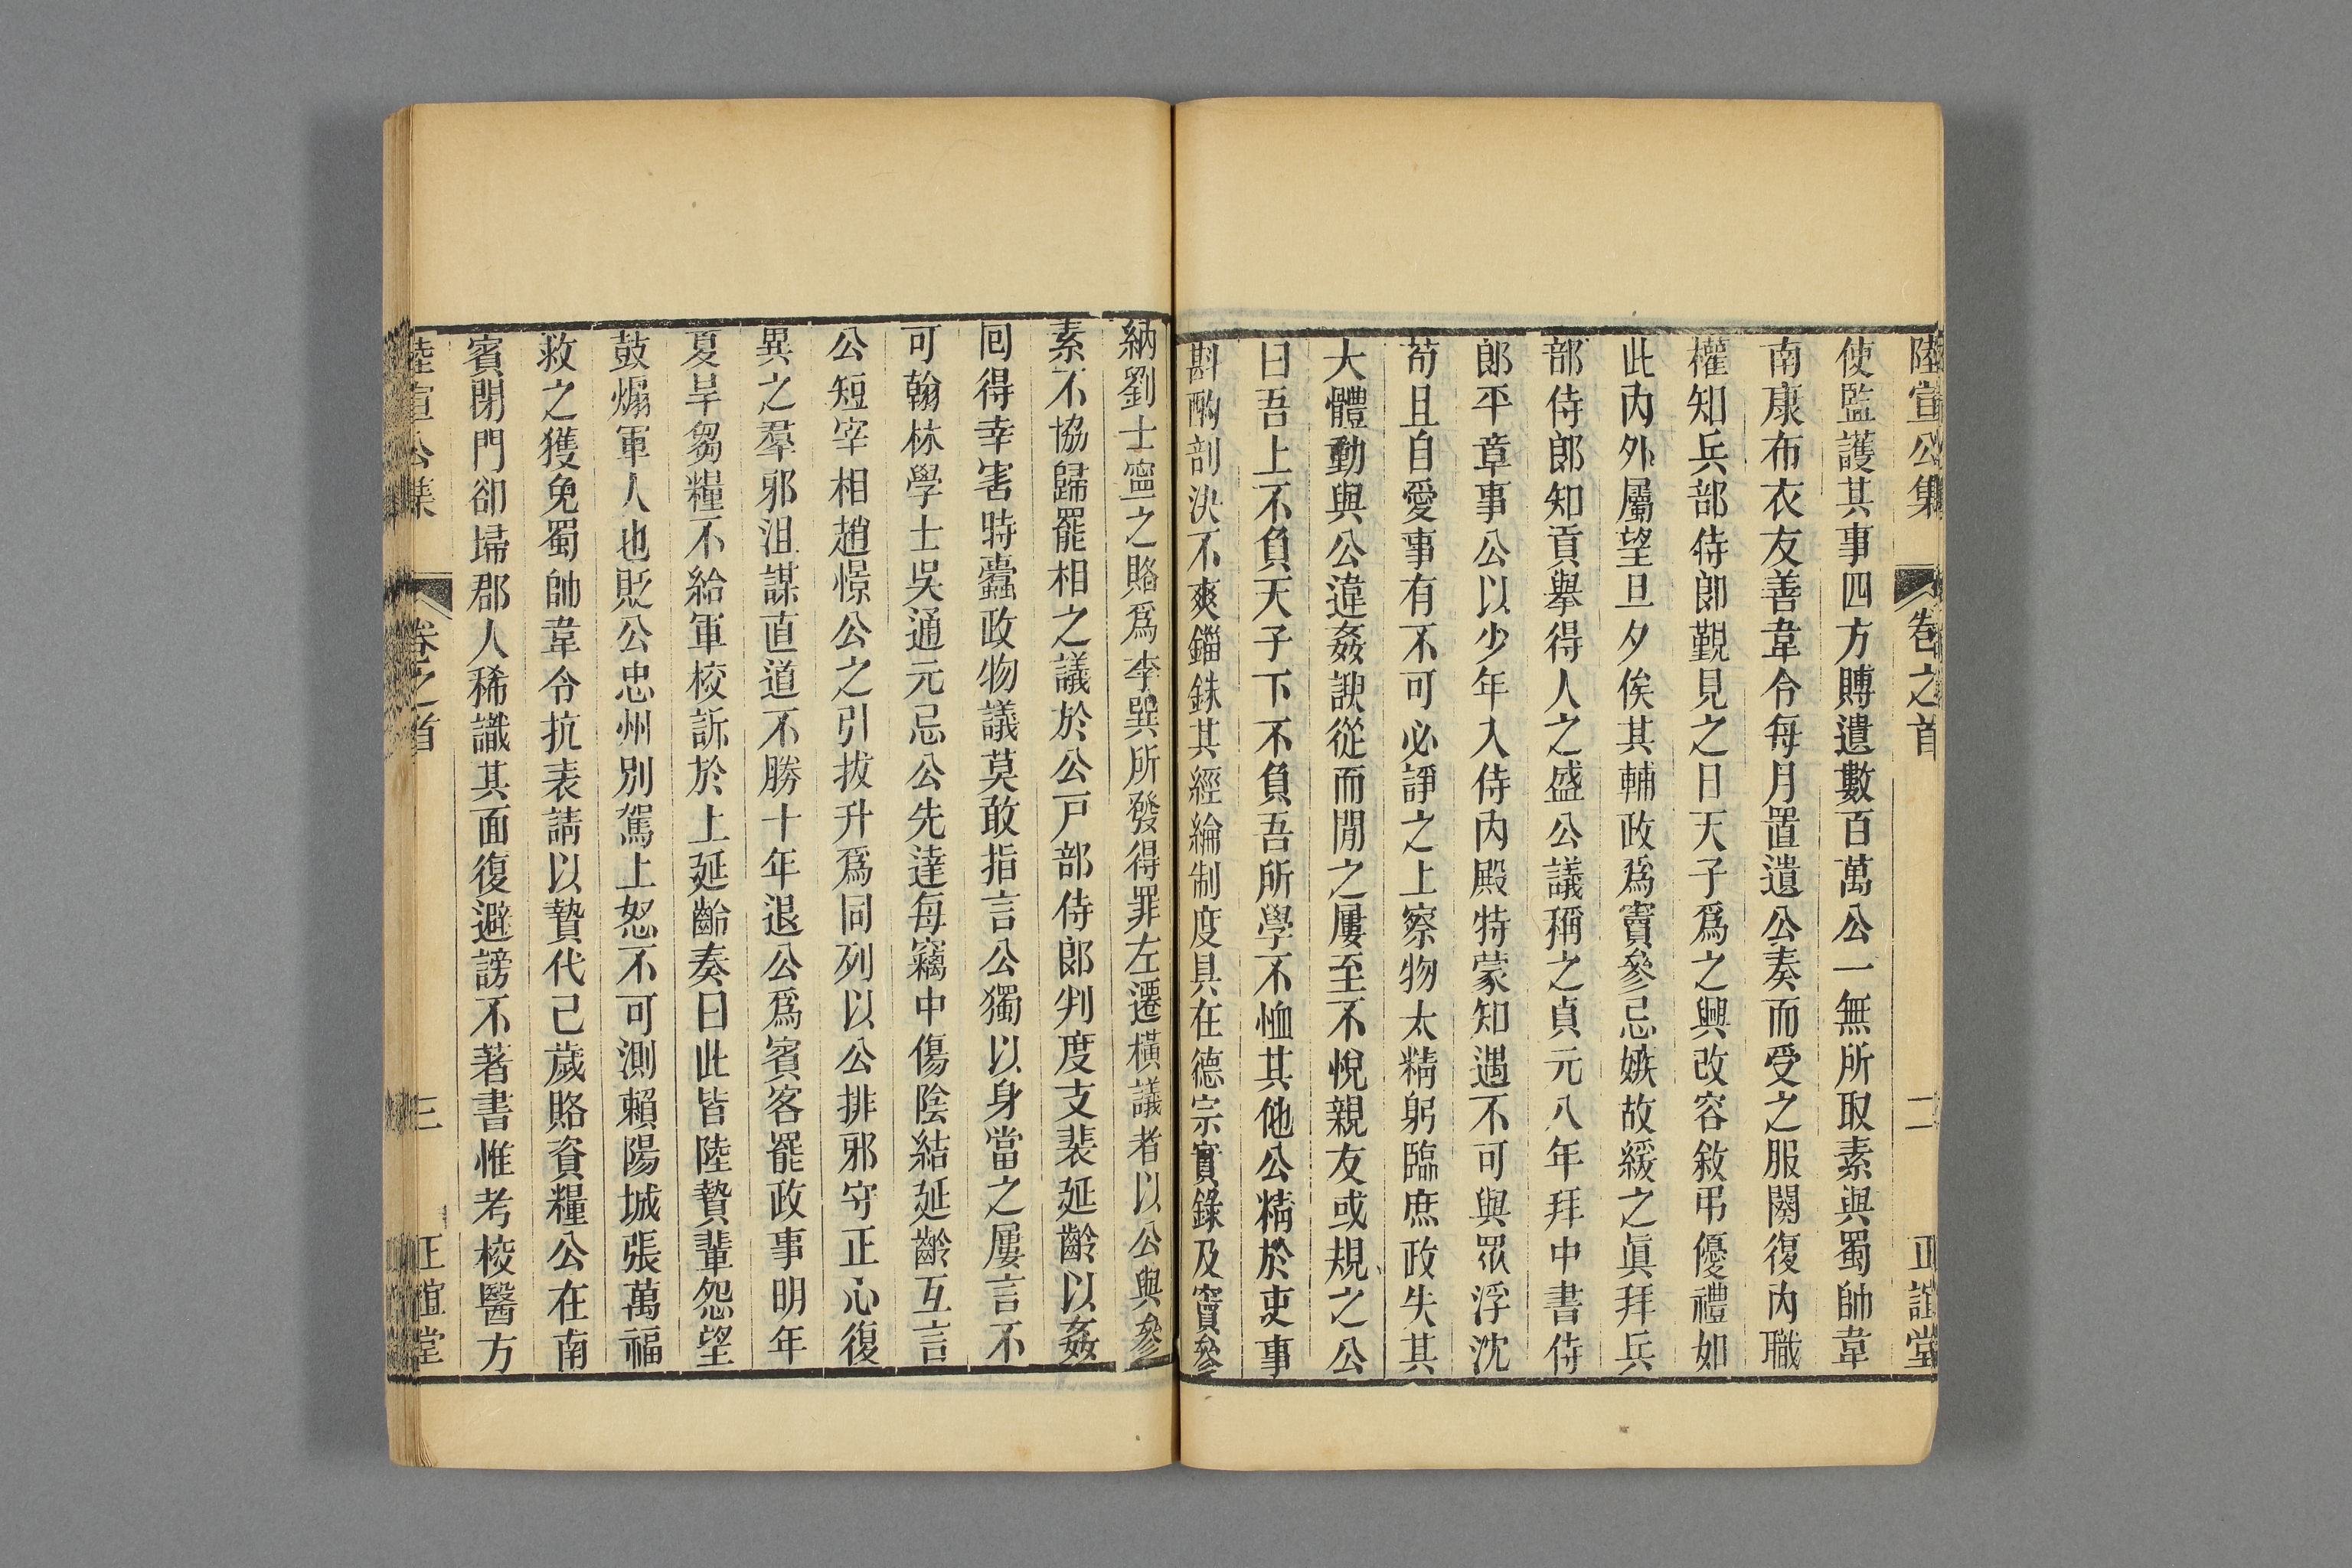 陸宣公集 卷之首 二 正誼堂
使監護其事四方賻遺數百萬公一無所取素與蜀帥韋
南康布衣友善韋令每月置遺公奏而受之服闋復內職
權知兵部侍郎覲見之日天子爲之興改容敘弔優禮如
此內外屬望旦夕俟其輔政爲竇參忌嫉故緩之眞拜兵
部侍郎知貢舉得人之盛公議稱之貞元八年拜中書侍
郎平章事公以少年入侍內殿特蒙知遇不可與眾浮沈
苟且自愛事有不可必諍之上察物太精躬臨庶政失其
大體動與公違姦諛從而閒之屢至不悅親友或規之公
曰吾上不負天子下不負吾所學不恤其他公精於吏事
斟酌剖決不爽錙銖其經綸制度具在德宗實錄及竇參
納劉士寧之賂爲李巽所發得罪左遷橫議者以公與參
素不協歸罷相之議於公戶部侍郎判度支裴延齡以姦
回得幸害時蠹政物議莫敢指言公獨以身當之屢言不
可翰林學士吳通元忌公先達每竊中傷陰結延齡互言
公短宰相趙憬公之引拔升爲同列以公排邪守正心復
異之羣邪沮謀直道不勝十年退公爲賓客罷政事明年
夏旱芻糧不給軍校訴於上延齡奏曰此皆陸贄輩怨望
鼓煽軍人也貶公忠州別駕上怒不可測賴陽城張萬福
救之獲免蜀帥韋令抗表請以贄代己歲賂資糧公在南
賓閉門卻埽郡人稀識其面復避謗不著書惟考校醫方
陸宣公集 卷之首 三 正誼堂